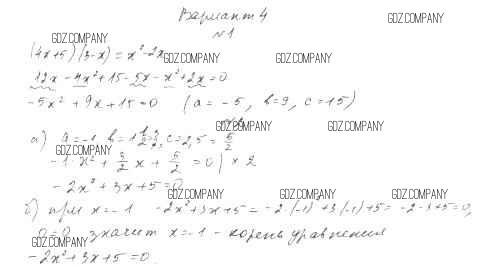 Вариант 4
GDZ.COMPANY
№1
GDZ.COMPANY
(4x+5)(3-x)=x²-2x
GDZ.COMPANY GDZ.COMPANY
12x-4x²+15-5x-x²+2x=0
-5x²+9x+15=0 (a=-5, b=9, c=15)
GDZ.COMPANY GDZ.COMPANY
а) a=-1 b=1 1/2=3/2, c=2,5=5/2
GDZ.COMPANY
-1·x²+3/2x+5/2=0|×2
-2x²+3x+5=0
GDZ.COMPANY GDZ.COMPANY GDZ.COMPANY
б) при x=-1 -2x²+3x+5=-2·(-1)²+3(-1)+5=-2-3+5=0,
0=0 значит x=-1 - корень уравнения
GDZ.COMPANY
-2x²+3x+5=0.